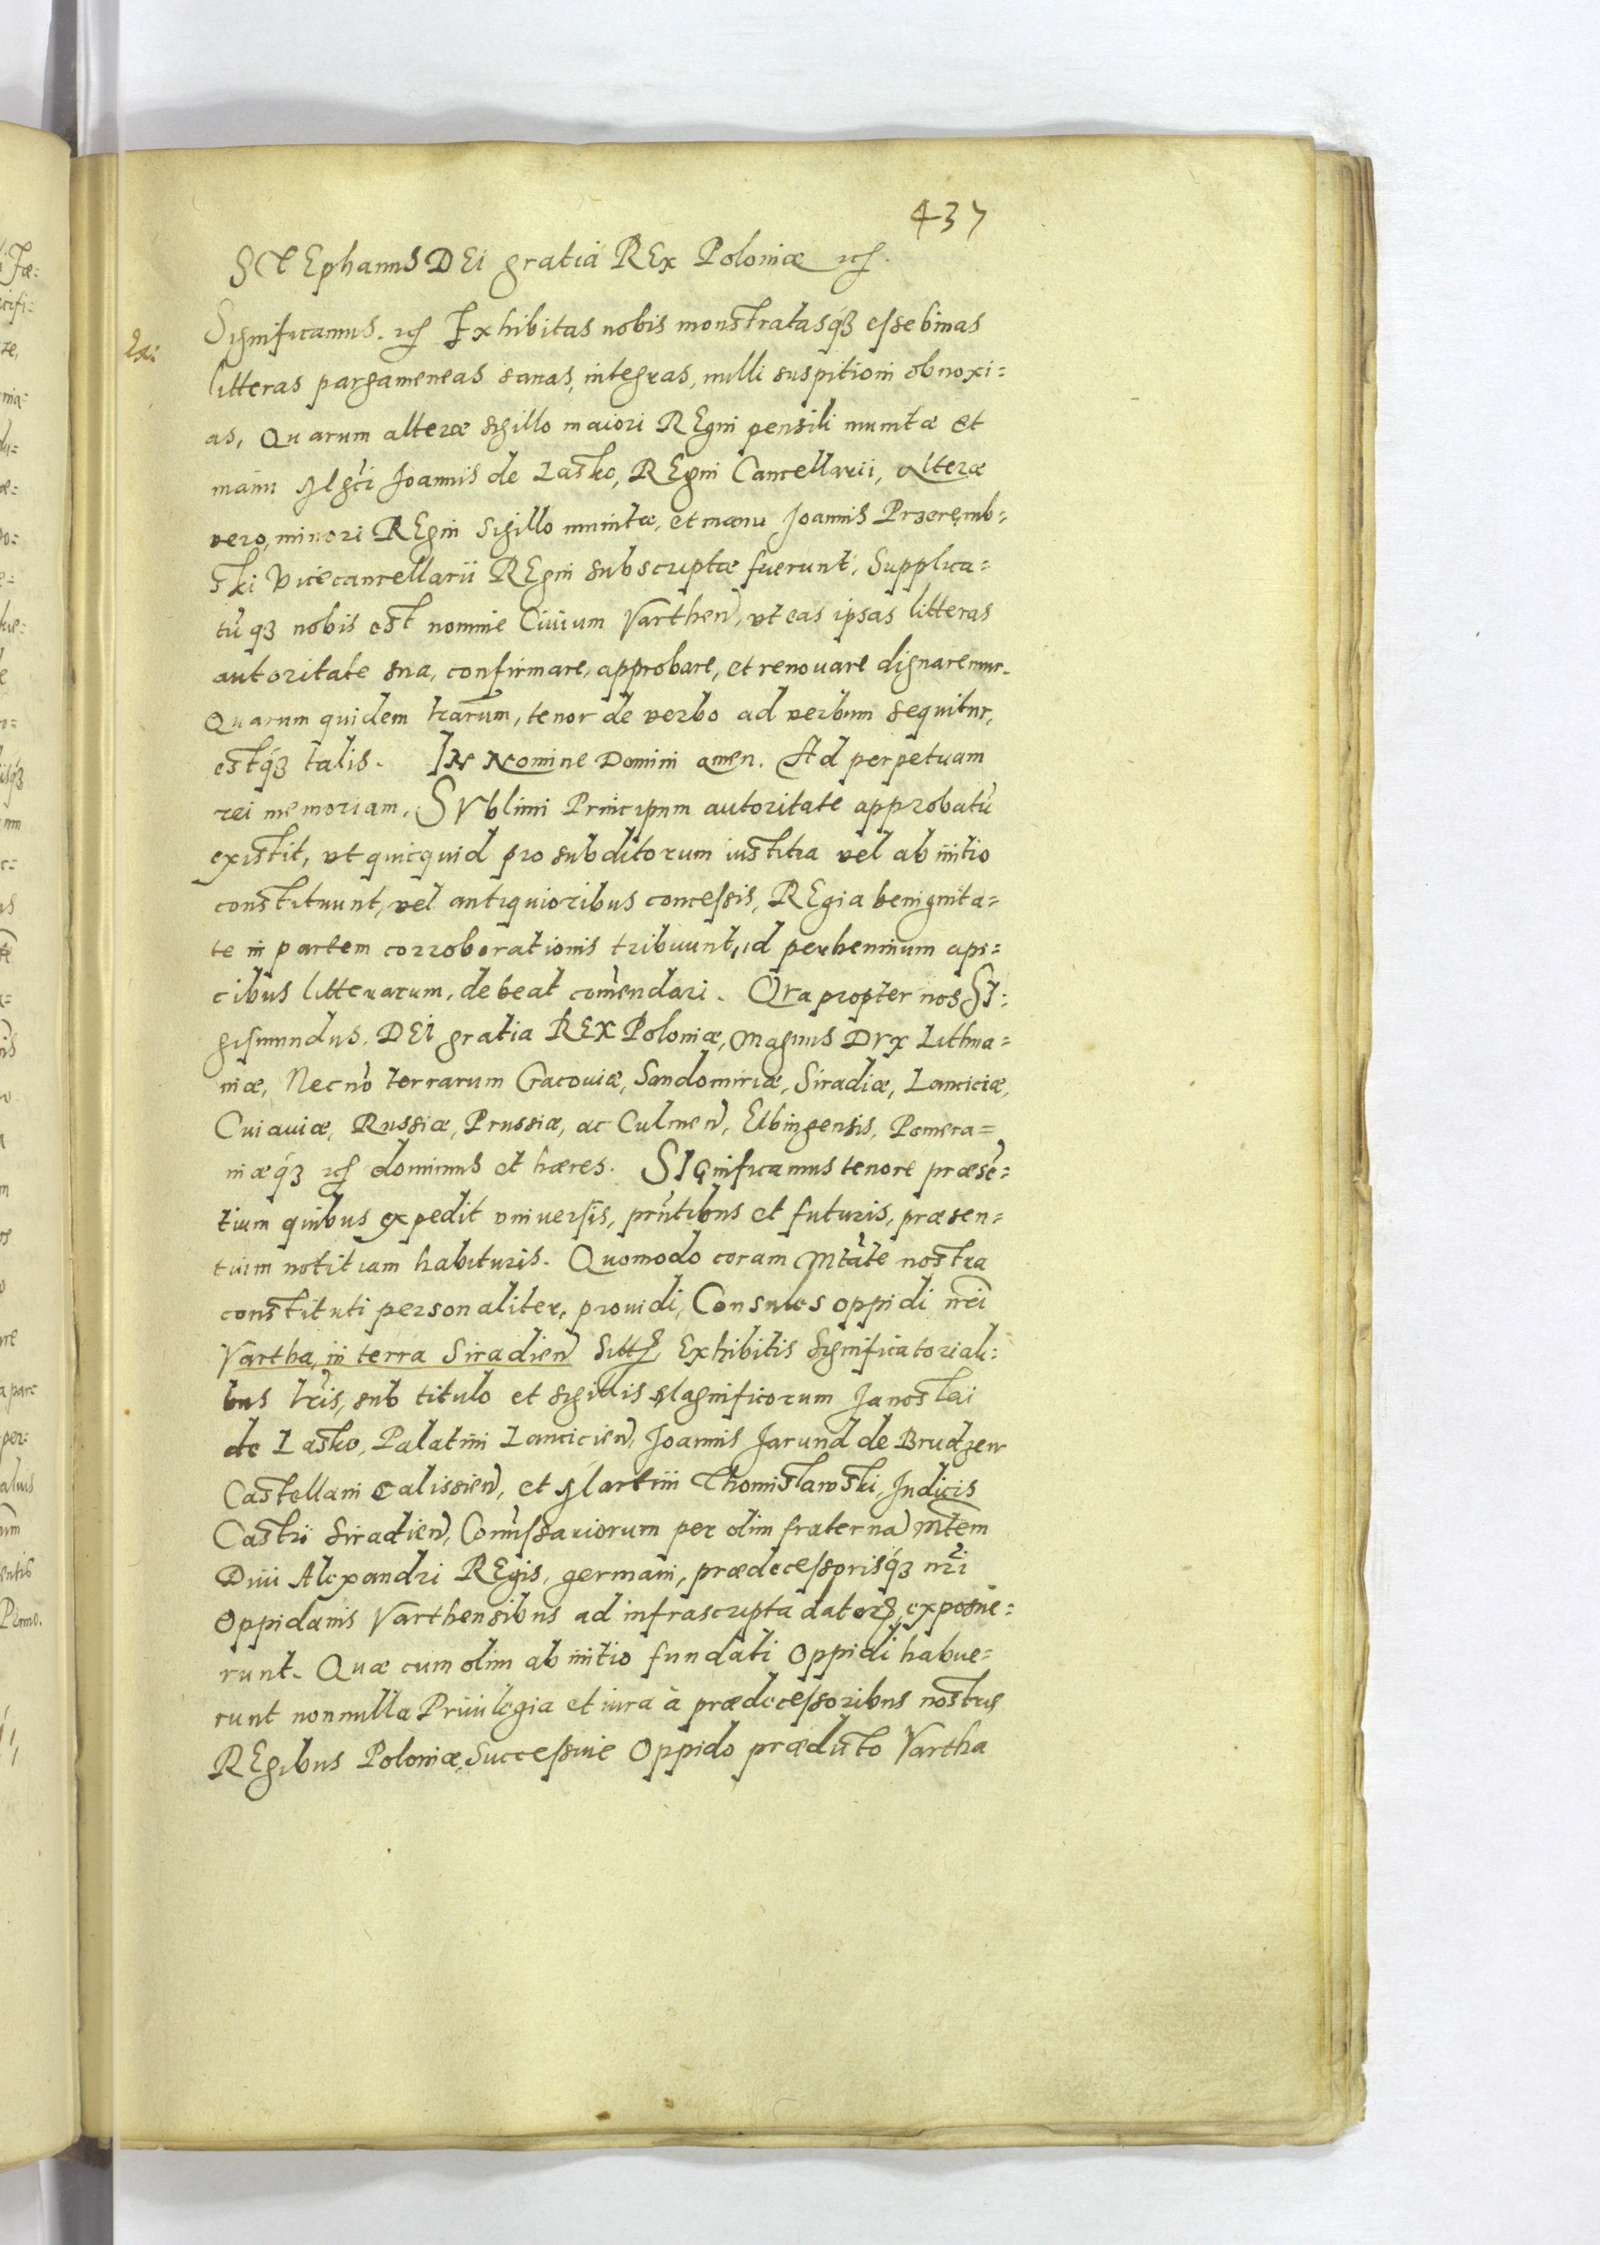 437
STEphanus DEi gratia REx Poloniæ etc.
Ex:
Significamus. etc Exhibitas nobis monstratasq́ꝫ esse binas
litteras pargameneas sanas, integras, nulli suspitioni obnoxi=
as, Quarum alteræ sigillo maiori REgni pensili munitæ et
manu Mgci Joannis de Lasko, REgni Cancellarii, alteræ
vero, minori REgni sigillo munitæ, et manu Joannis Przeremb=
ski Vicecancellarii REgni subscriptæ fuerunt, Supplica=
tũ qꝫ nobis est nomine Ciuium Varthen, vt eas ipsas litteras
autoritate sua, confirmare, approbare, et renouare dignaremur.
Quarum quidem lrarum, tenor de verbo ad verbum sequitur,
estq́ꝫ talis. IN Nomine Domini amen. Ad perpetuam
rei memoriam, SVblimi Principum autoritate approbatũ
existit, vt quicquid pro subditorum iustitia vel ab initio
constituunt, vel antiquioribus concessis, REgia benignita=
te in partem corroborationis tribuunt, id perhennium api=
cibus litterarum, debeat comendari. QVapropter nos SI=
gismundus, DEi gratia REX Poloniæ, Magnus DVx Lithua=
niæ, Necnõ terrarum Cracouiæ, Sandomiriæ, Siradiæ, Lanciciæ,
Cuiauiæ, Russiæ, Prussiæ, ac Culmen, Elbingensis, Pomera=
niæq́ꝫ etc dominus et hæres. SIGnificamus tenore præsẽ=
tium quibus expedit vniuersis, prntibus et futuris, præsen=
tium notitiam habituris. Quomodo coram Mtate nostra
constituti personaliter, prouidi, Consules oppidi nri
Vartha, in terra Siradien sitt, Exhibitis significatoriali=
bus lris, sub titulo et sigillis Magnificorum Janoslai
de Lasko, Palatini Lancicien, Joannis Jarund de Brudzew
Castellani Calissien, et Martini Thomislawski, Judicis
Castri Siradien, Comissariorum per olim fraterna Mtem
Diui Alexandri REgis, germani, prædecessorisq́ꝫ nri
Oppidanis Varthensibus ad infrascripta dator, exposue=
runt. Quæ cum olim ab initio fundati Oppidi habue=
runt nonnulla Priuilegia et iura à prædecessoribus nostris
REgibus Poloniæ, Successiue Oppido prædicto Vartha